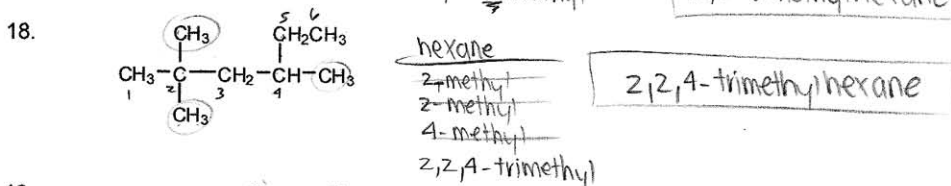 18.
5 6
CH₃ CH₂CH₃
CH₃-C-CH₂-C-CH₃
1 2 3 4
CH₃
hexane
2-methyl
2-methyl
4-methyl
2,2,4-trimethyl
2,2,4-trimethylhexane